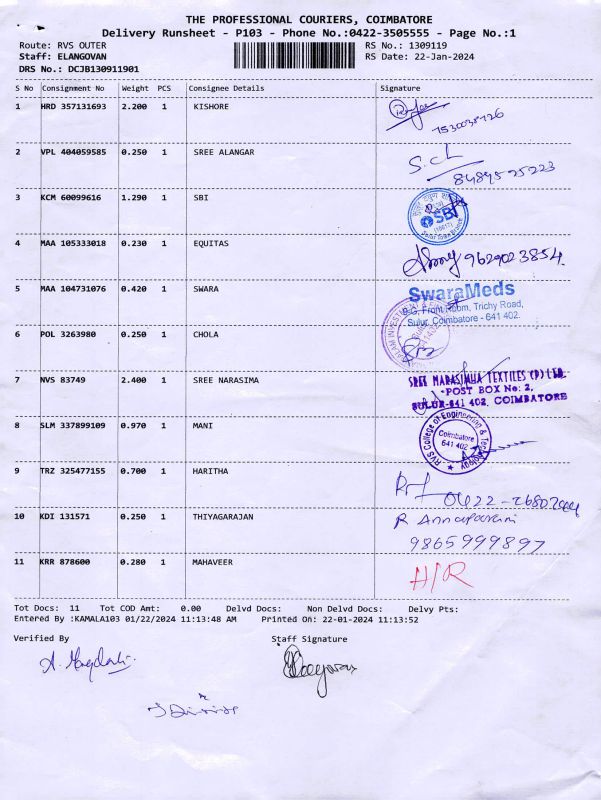 THE PROFESSIONAL COURIERS, COIMBATORE
Delivery Runsheet - P103 - Phone No.:0422-3505555 - Page No.:1
Route: RVS OUTER RS No.: 1309119
Staff: ELANGOVAN RS Date: 22-Jan-2024
DRS No.: DCJB130911901
S No Consignment No Weight PCS Consignee Details Signature
1 HRD 357131693 2.200 1 KISHORE
2 VPL 404059585 0.250 1 SREE ALANGAR
3 KCM 60099616 1.290 1 SBI
SBI
4 MAA 105333018 0.230 1 EQUITAS
9629023854.
5 MAA 104731076 0.420 1 SWARA SwaraMeds
Room, Trichy Road,
Sulur, Coimbatore - 641 402.
6 POL 3263980 0.250 1 CHOLA
7 NVS 83749 2.400 1 SREE NARASIMA SREE NARASIMHA TEXTILES (P) LTD.
POST BOX No: 2,
SULUR-641 402, COIMBATORE
8 SLM 337899109 0.970 1 MANI
RVS College of Engineering &
Coimbatore
641 402
9 TRZ 325477155 0.700 1 HARITHA
10 KDI 131571 0.250 1 THIYAGARAJAN
9865999897
11 KRR 878600 0.280 1 MAHAVEER H/R
Tot Docs: 11 Tot COD Amt: 0.00 Delvd Docs: Non Delvd Docs: Delvy Pts:
Entered By :KAMALA103 01/22/2024 11:13:48 AM Printed On: 22-01-2024 11:13:52
Verified By Staff Signature